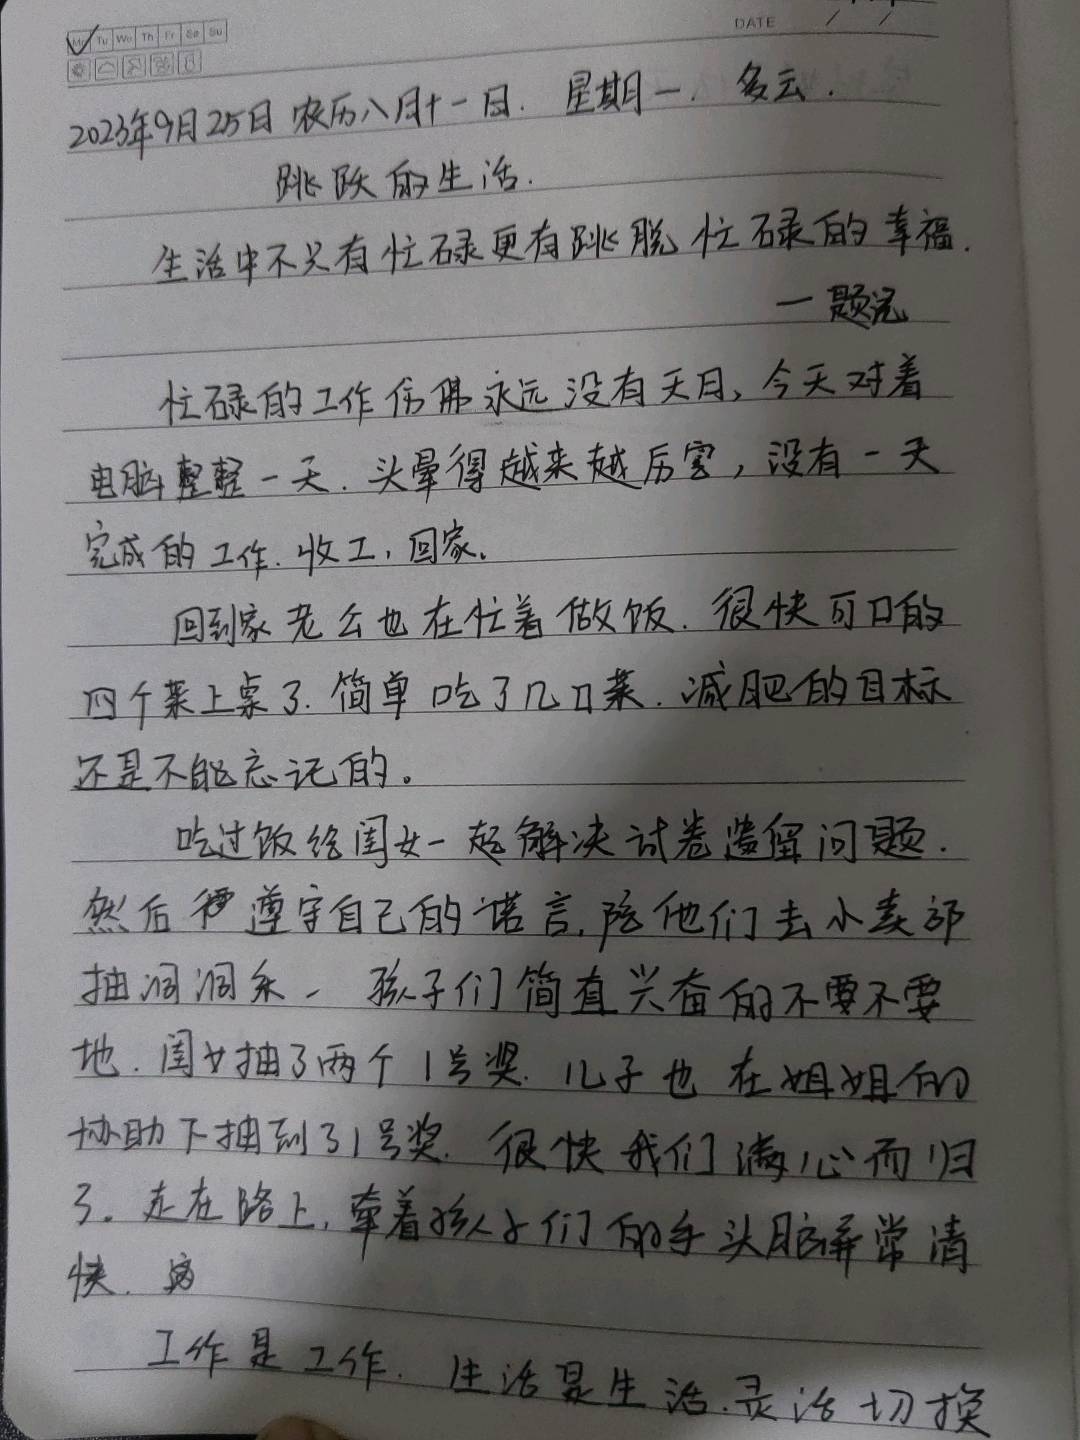 Mo Tu We Th Fr Sa Su
DATE / /
2023年9月25日 农历八月十一日. 星期一. 多云.
跳跃的生活.
生活中不只有忙碌更有跳脱忙碌的幸福.
一题记
忙碌的工作仿佛永远没有天日、今天对着
电脑整整一天.头晕得越来越厉害，没有一天
完成的工作.收工，回家。
回到家老公也在忙着做饭.很快可口的
四个菜上桌了.简单吃了几口菜.减肥的目标
还是不能忘记的。
吃过饭给闺女一起解决试卷遗留问题.
然后遵守自己的诺言,陪他们去小卖部
抽洞洞乐-孩子们简直兴奋的不要不要
地.闺女抽了两个1号奖.儿子也在姐姐的
协助下抽到了1号奖.很快我们满心而归
了。走在路上,牵着孩子们的手头脑异常清
快.
工作是工作.生活是生活.灵活切换